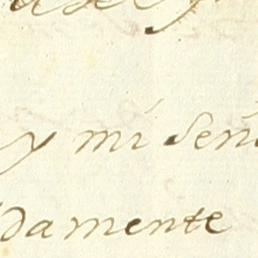 y mi Señ
damente